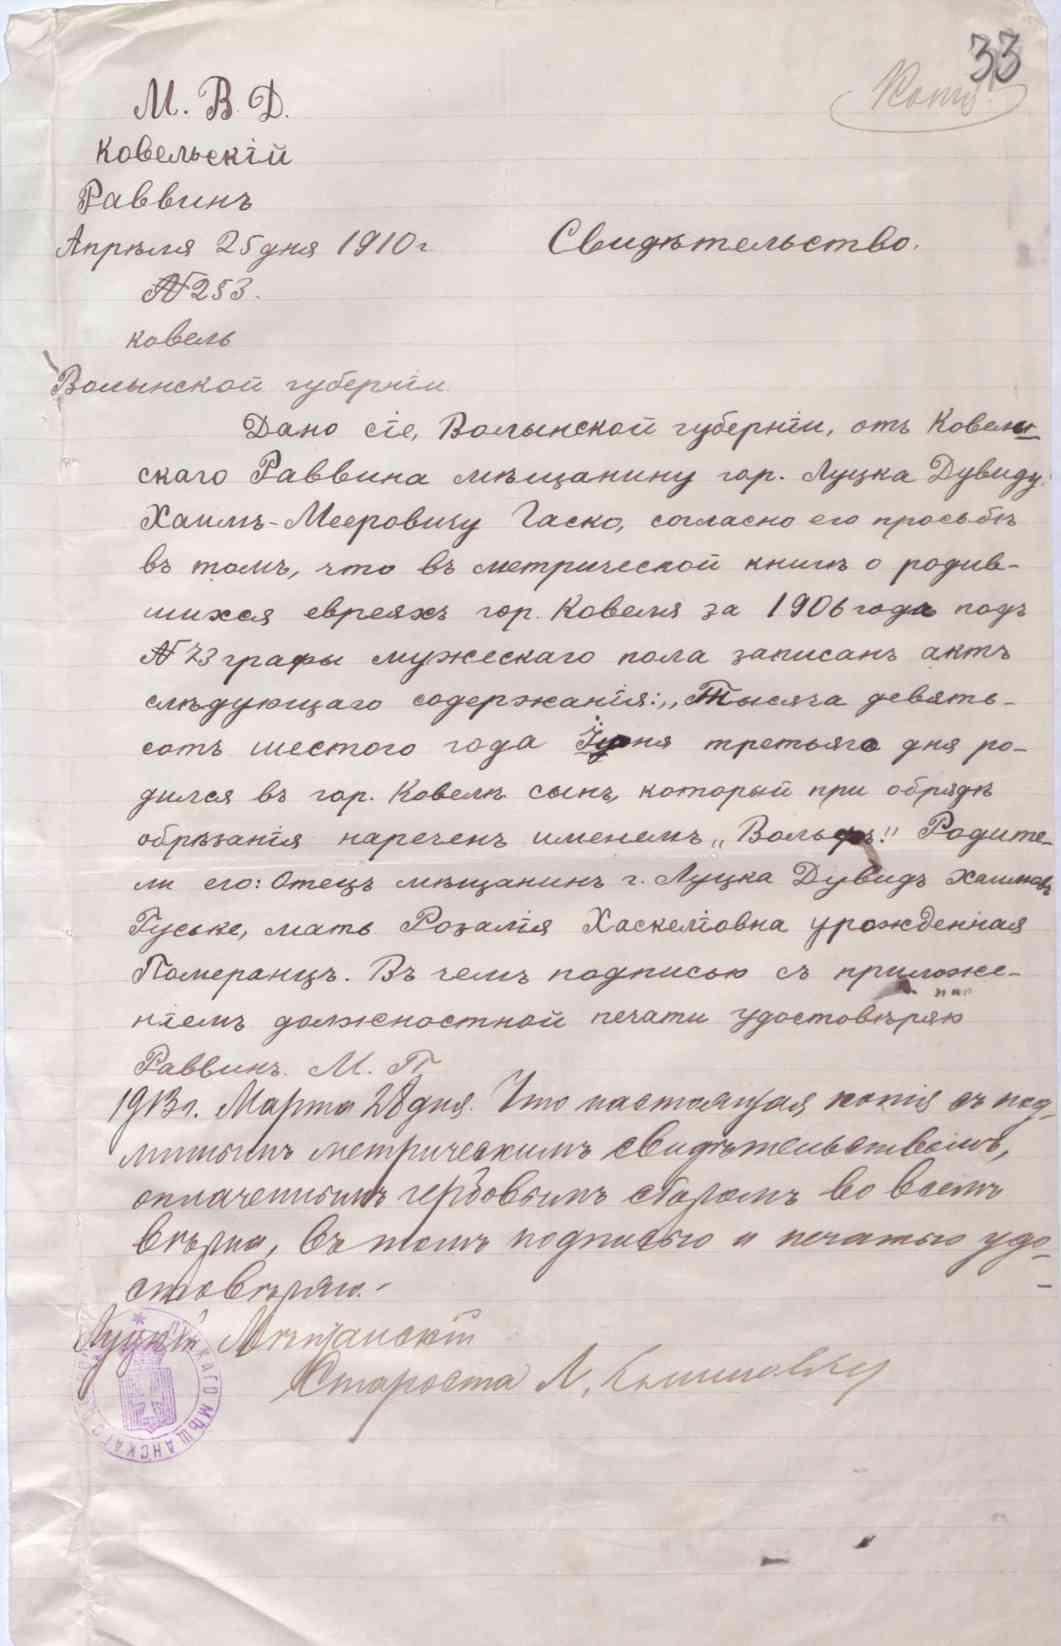 33
Копія.
М. В. Д.
Ковельскій
Раввинъ
Апрѣля 25 дня 1910 г.
№ 253.
Свидѣтельство.
Ковель
Волынской губерніи
Дано сіе, Волынской губерніи, отъ Ковель-
скаго Раввина мѣщанину гор. Луцка Дувиду
Хаимъ-Мееровичу Гаско, согласно его просьбѣ
въ томъ, что въ метрической книгѣ о родив-
шихся евреяхъ гор. Ковеля за 1906 года подъ
№ 23 графы мужескаго пола записанъ актъ
слѣдующаго содержанія: „Тысяча девять-
сотъ шестого года Іюня третьяго дня ро-
дился въ гор. Ковелѣ сынъ, который при обрядѣ
обрѣзанія нареченъ именемъ „Вольфъ". Родите-
ли его: Отецъ мѣщанинъ г. Луцка Дувидъ Хаимовъ
Гуське, мать Розалія Хаскеліовна урожденная
Померанцъ. Въ чемъ подписью съ приложе-
ніемъ должностной печати удостовѣряю
Раввинъ. М. П.
1913 г. Марта 28 дня. Что настоящая копія съ под-
линнымъ метрическимъ свидѣтельствомъ,
оплаченнымъ гербовымъ сборомъ во всемъ
вѣрна, въ томъ подписью и печатью удо-
стовѣряю.-
Луцкій Мѣщанскій
Староста Л.
ЛУЦКАГО МѢЩАНСКАГО